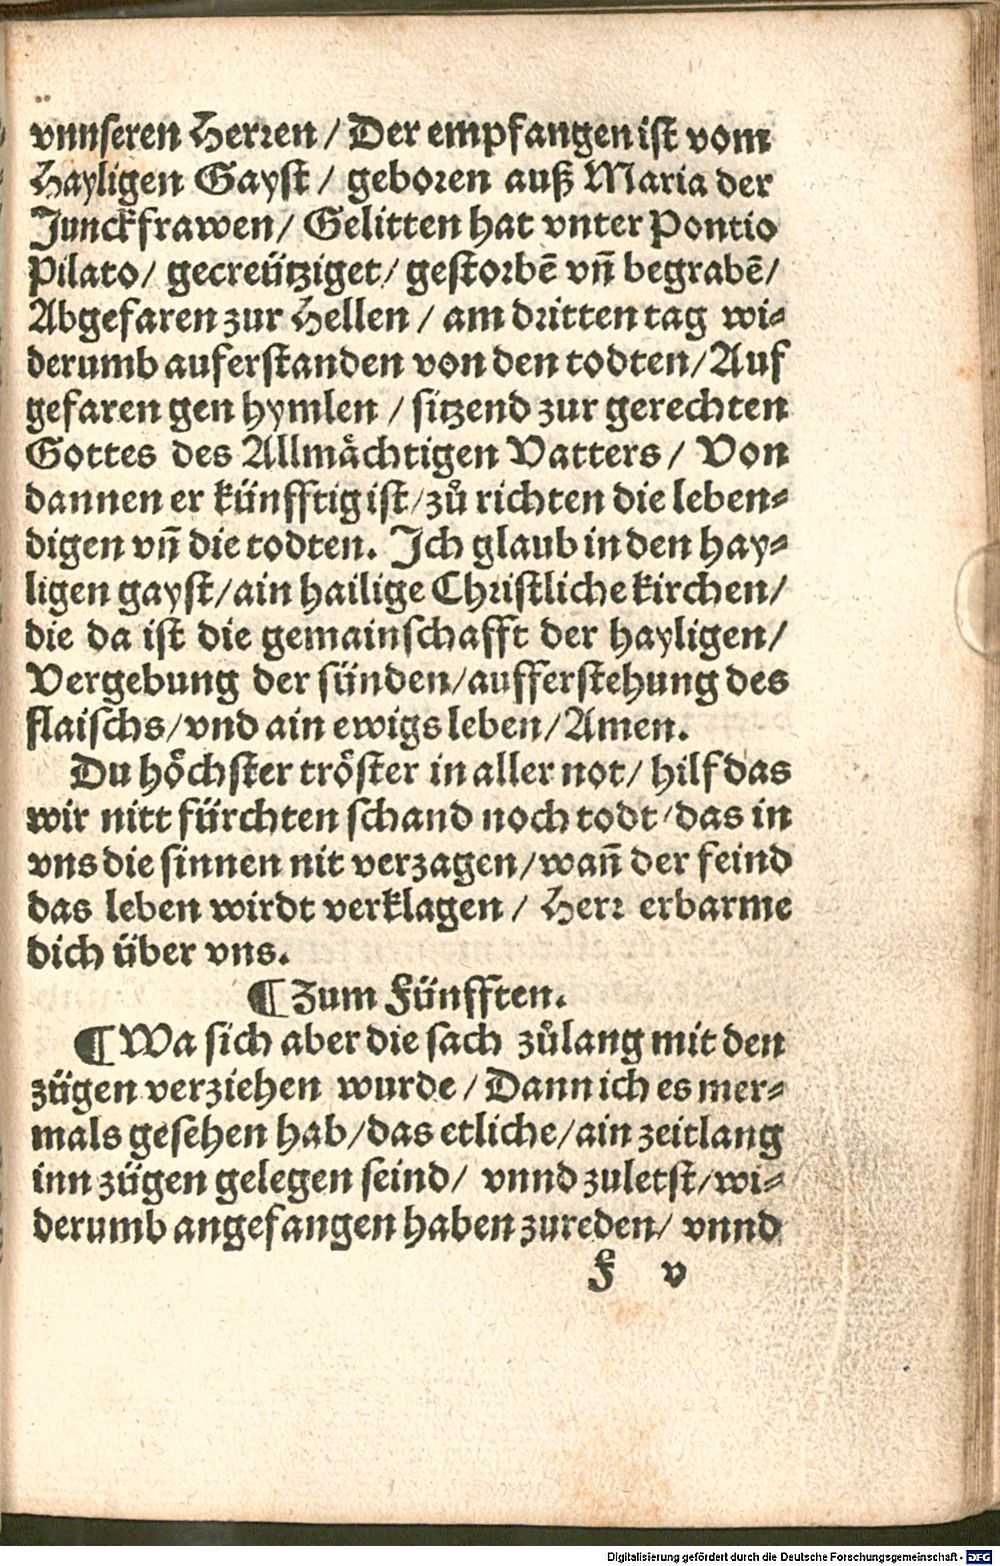 vnnseren Herren / Der empfangen ist vom
Hayligen Gayst / geboren auß Maria der
Junckfrawen / Gelitten hat vnter Pontio
Pilato / gecreützigt / gestorbē vn̄ begrabē /
Abgefaren zur Hellen / am dritten tag wi=
derumb auferstanden von den todten / Auf
gefaren gen hymlen / sitzend zur gerechten
Gottes des Allmächtigen Vatters / Von
dannen er künfftig ist / zů richten die leben=
digen vn̄ die todten. Ich glaub in den hay=
ligen gayst / ain hailige Christliche kirchen /
die da ist die gemainschafft der hayligen /
Vergebung der sünden / aufferstehung des
flaischs / vnd ain ewigs leben / Amen.
Du höchster tröster in aller not / hilf das
wir nitt fürchten schand noch todt / das in
vns die sinnen nit verzagen / wan̄ der feind
das leben wirdt verklagen / Herr erbarme
dich über vns.
¶ Zum Fünfften.
¶ Wa sich aber die sach zůlang mit den
zügen verziehen wurde / Dann ich es mer=
mals gesehen hab / das etliche / ain zeitlang
inn zügen gelegen seind / vnnd zuletst / wi=
derumb angefangen haben zureden / vnnd
F v
Digitalisierung gefördert durch die Deutsche Forschungsgemeinschaft - DFG